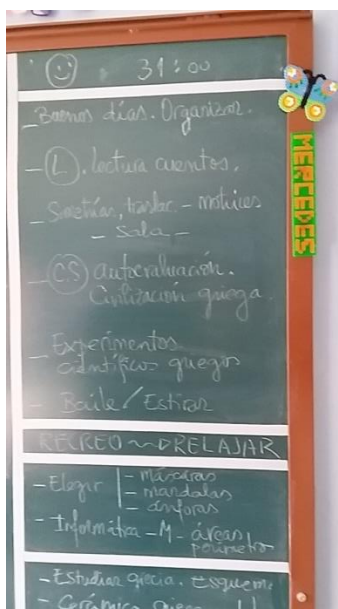 31:00
- Buenos días. Organizar.
- (L). lectura cuentos.
- Simetrías, traslac. - motrices
- Sala -
- (CS) autoevaluación.
Civilización griega.
- Experimentos
científicos griegos
- Baile / Estirar
RECREO ~~> RELAJAR
- Elegir | - máscaras
- mandalas
- ánforas
- Informática - M - áreas
perímetro
- Estudiar grecia. Esquema
- Cerámica griega
MERCEDES